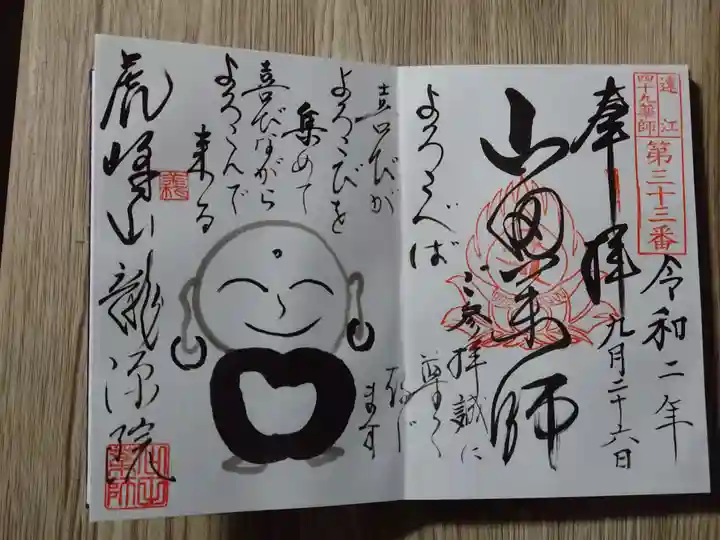 遠江
四十九薬師
第三十三番
奉拝
令和二年
九月二十六日
山田薬師
ご参拝誠に
尊く
存じ
ます
よろこべば
喜びが
よろこびを
集めて
喜びながら
よろこんで
来る
虎峰山龍源院
山田
薬師